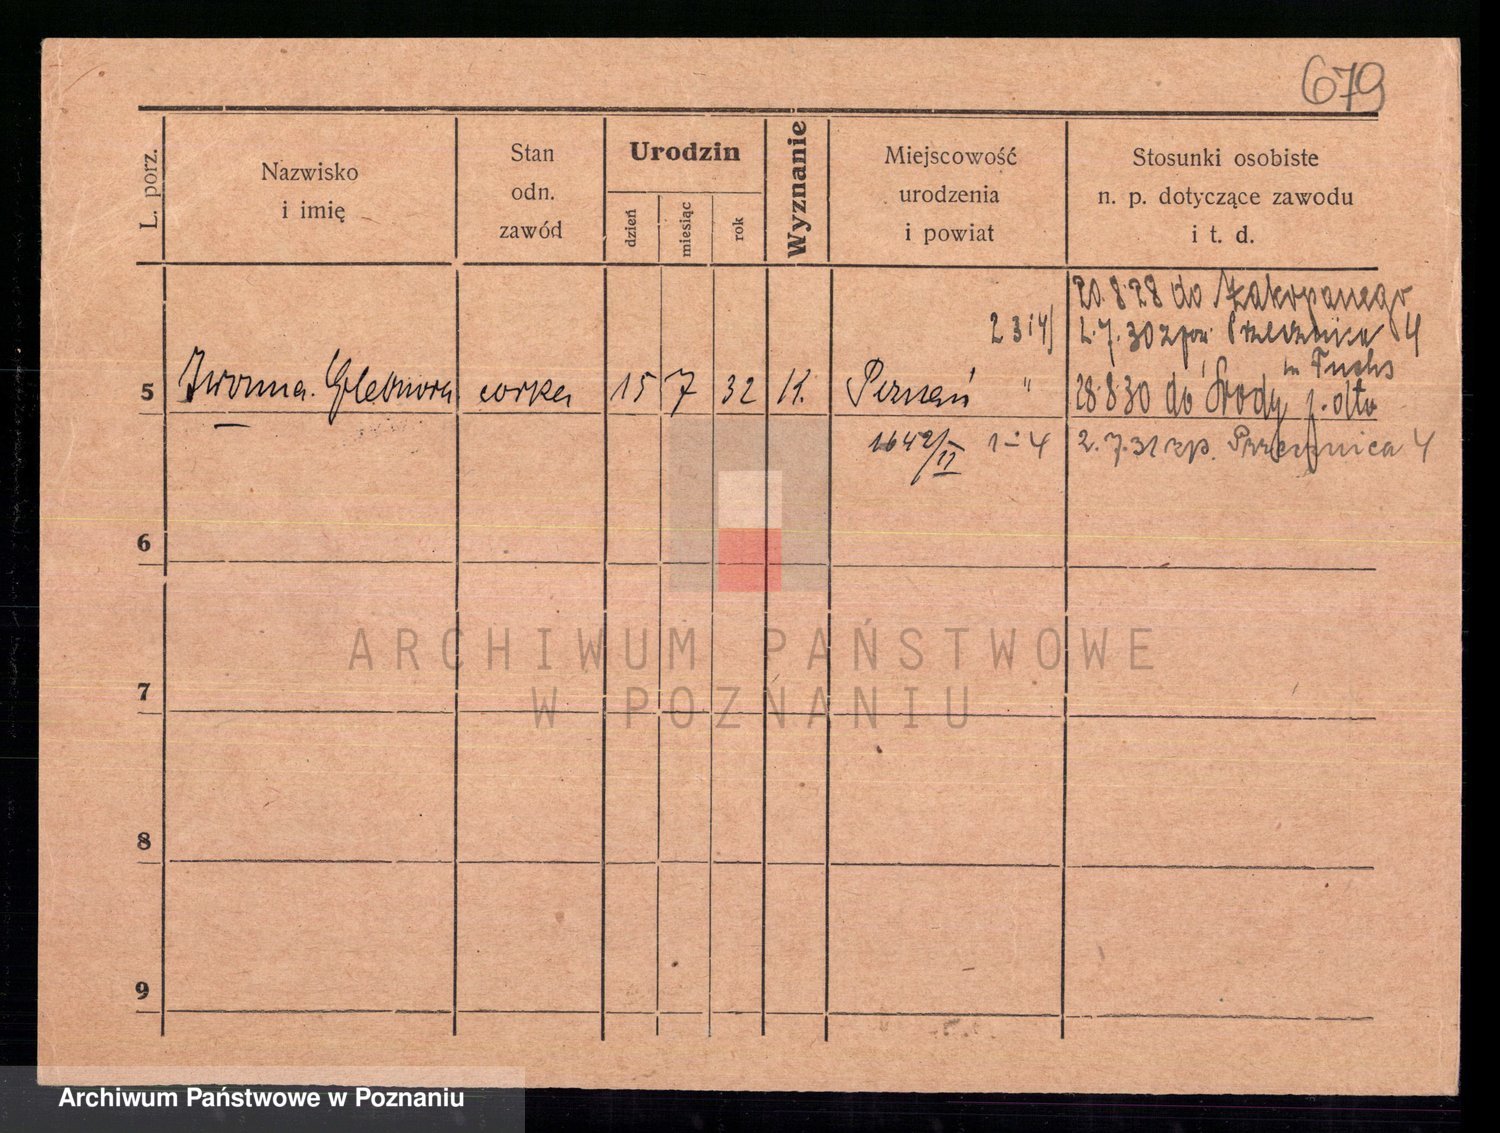 679
L. porz.
Nazwisko
i imię
Stan
odn.
zawód
Urodzin
dzień
miesiąc
rok
Wyznanie
Miejscowość
urodzenia
i powiat
Stosunki osobiste
n. p. dotyczące zawodu
i t. d.
20.8.28 do Zakopanego
2 3 i 4) 2.7.30 z pow. Przecznica 4
m Fuchs
5 Iwonna córka 15 7 32 K. Poznań " 28.8.30 do Środy
1642/II 1-4 2.7.31 zp. Przecznica 4
6
7
8
9
ARCHIWUM PAŃSTWOWE
W POZNANIU
Archiwum Państwowe w Poznaniu